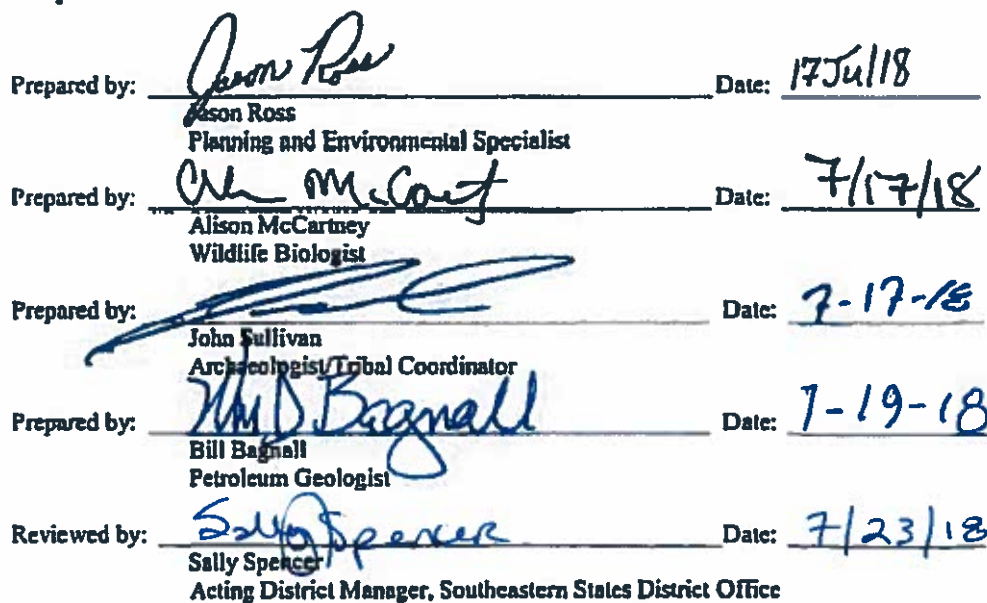 Prepared by: Jason Ross Date: 17Jul18
Jason Ross
Planning and Environmental Specialist
Prepared by: Date: 7/17/18
Alison McCartney
Wildlife Biologist
Prepared by: Date: 7-17-18
John Sullivan
Archaeologist/Tribal Coordinator
Prepared by: Wm D Bagnall Date: 7-19-18
Bill Bagnall
Petroleum Geologist
Reviewed by: Sally Spencer Date: 7/23/18
Sally Spencer
Acting District Manager, Southeastern States District Office